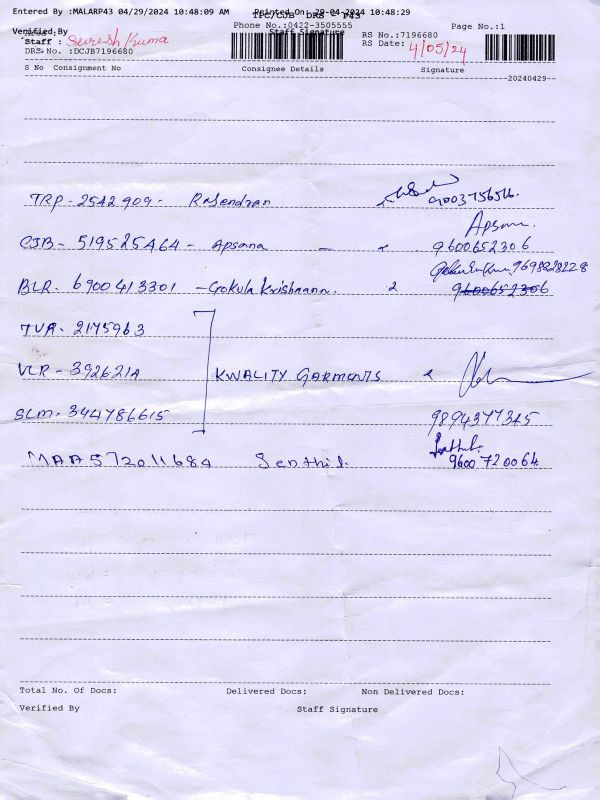 Entered By :MALARP43 04/29/2024 10:48:09 AM Printed On: 29-04-2024 10:48:29
TPC/CJB DRS - P43
Phone No.:0422-3505555 Page No.:1
Verified By Staff Signature
Staff : Suresh Kuma RS No.:7196680
DRS No. :DCJB7196680 RS Date: 4/05/24
S No Consignment No Consignee Details Signature
20240429
TRP - 2542909 - Rajendran
CJB - 519525464 - Apsana - Apsana. 9600652306
9698228228
BLR - 6900413301 - Gokula Krishnann. 9600652306
TVR - 2175963
VLR - 392621A KWALITY GARMENTS
SLM - 344786615 9894377345
MAA572011684 Senthil. 9600720064
Total No. Of Docs: Delivered Docs: Non Delivered Docs:
Verified By Staff Signature